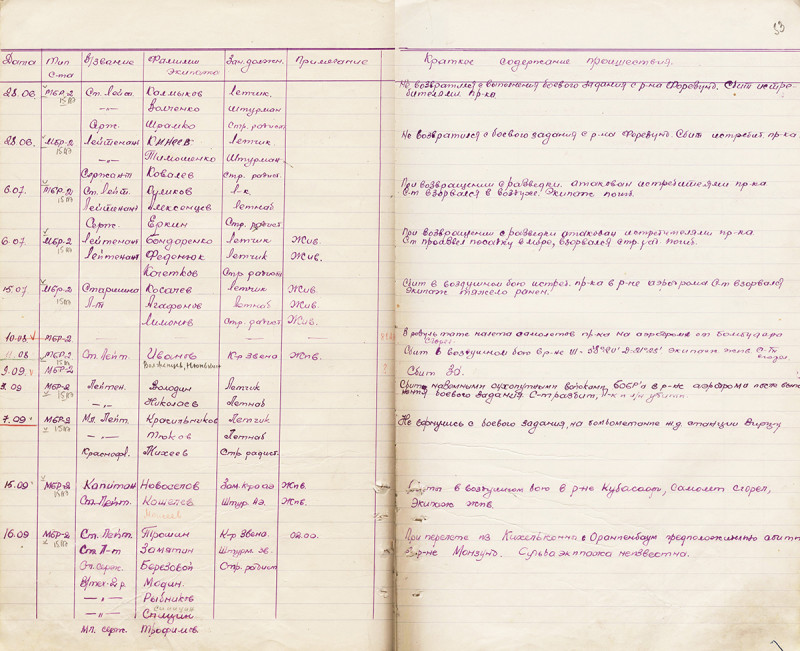 53
Дата Тип с-та В/звание Фамилия экипажа Зан. должн. Примечание Краткое содержание происшествия.
28.06. МБР-2 Ст. Лейт. Калмыков Летчик. Не возвратился с выполнения боевого задания с р-на Форевунд. Сбит истре-
15АП -"- Волченко Штурман бителями пр-ка
Серж. Шрамко Стр. радист
28.06. МБР-2 Лейтенант Летчик. Не возвратился с боевого задания с р-на Форевунд. Сбит истребит. пр-ка
15АП -"- Тимошенко Штурман
Сержант Ковалев Стр. радист.
6.07. МБР-2 Ст. Лейт. Куликов При возвращении с разведки атакован истребителями пр-ка
15АП Лейтенант Алексенцев Летнаб С-т взорвался в воздухе. Экипаж погиб.
Серж. Еркин Стр. радист
6.07. МБР-2 Лейтенант Бондаренко Летчик Жив. При возвращении с разведки атакован истребителями пр-ка
15АП Лейтенант Федонюк Летчик Жив. С-т произвел посадку в море, взорвался стр. погиб.
Кочетков Стр. радист
15.07 МБР-2 Старшина Косачев Летчик Жив. Сбит в воздушном бою истреб. пр-ка в р-не аэродрома С-т взорвался
15АП Л-т Агафонов Летнаб Жив. Экипаж тяжело ранен.
Лимонов Стр. радист Жив.
10.08 МБР-2 В результате налета самолетов пр-ка на аэродроме от бомбудара
сгорел
11.08 МБР-2 Ст. Лейт. Иванов К-р звена Жив. Сбит в воздушном бою в р-не Экипаж жив. С-т
9.09. МБР-2 Сбит ЗА.
9.09 МБР-2 Лейтен. Володин Летчик Сбит наземными сухопутными войсками, БОБР'а в р-не аэродрома после
15АП -"- Жиколаев Летнаб боевого задания. С-т разбит, убит.
7.09 МБР-2 Мл. Лейт. Красильников Летчик Не вернулись с боевого задания, на бомбометание ж.д. станции
15АП -"- Токов Летнаб
Краснофл. Михеев Стр. радист.
15.09 МБР-2 Капитан Новоселов Зам. К-ра аэ Жив. в воздушном бою в р-не Кубасаар, Самолет сгорел,
15АП Ст. Лейт. Кошелев Штур. АЭ. Жив. Экипаж жив.
16.09 МБР-2 Ст. Лейт. Трошин К-р звена. 02.00. При перелете из Кихельконна в Ораниенбаум предположительно сбит
15АП Ст. Л-т Замятин Штурм. зв. в р-не Моонзунд. Судьба экипажа неизвестна.
Ст. серж. Березовой Стр. радист
В/тех. 2 р. Модин.
-"- Рыбников
-"- Спицин
Мл. серж. Трофимов.